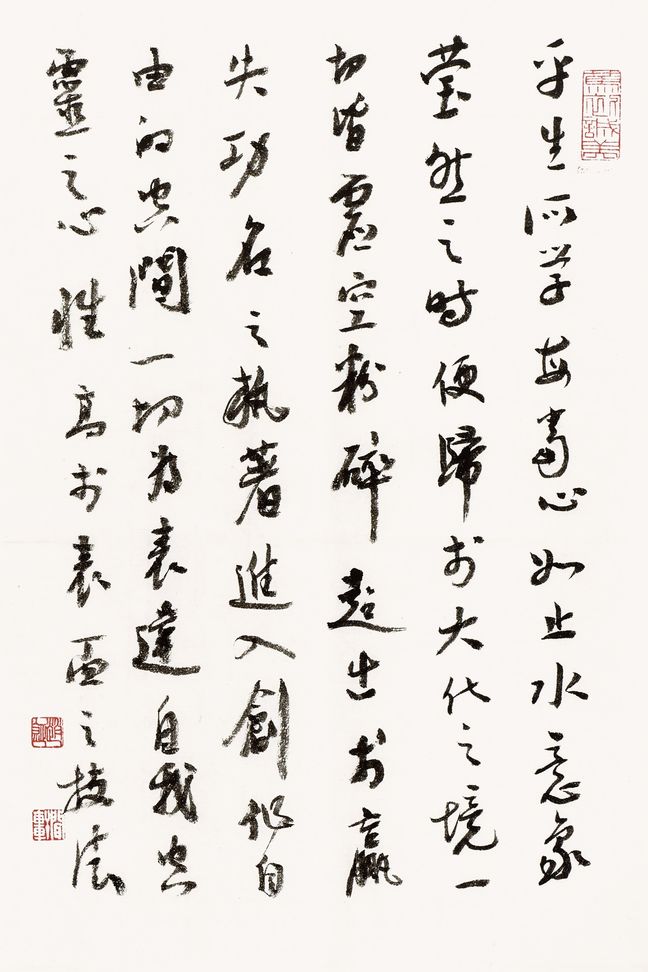 平生所学每當心如止水意象
莹然之時便歸於大化之境一
切皆虛空粉碎超出於贏
失功名之執著進入創作自
由的空間一切為表達自我空
靈之心性高於表面之技法